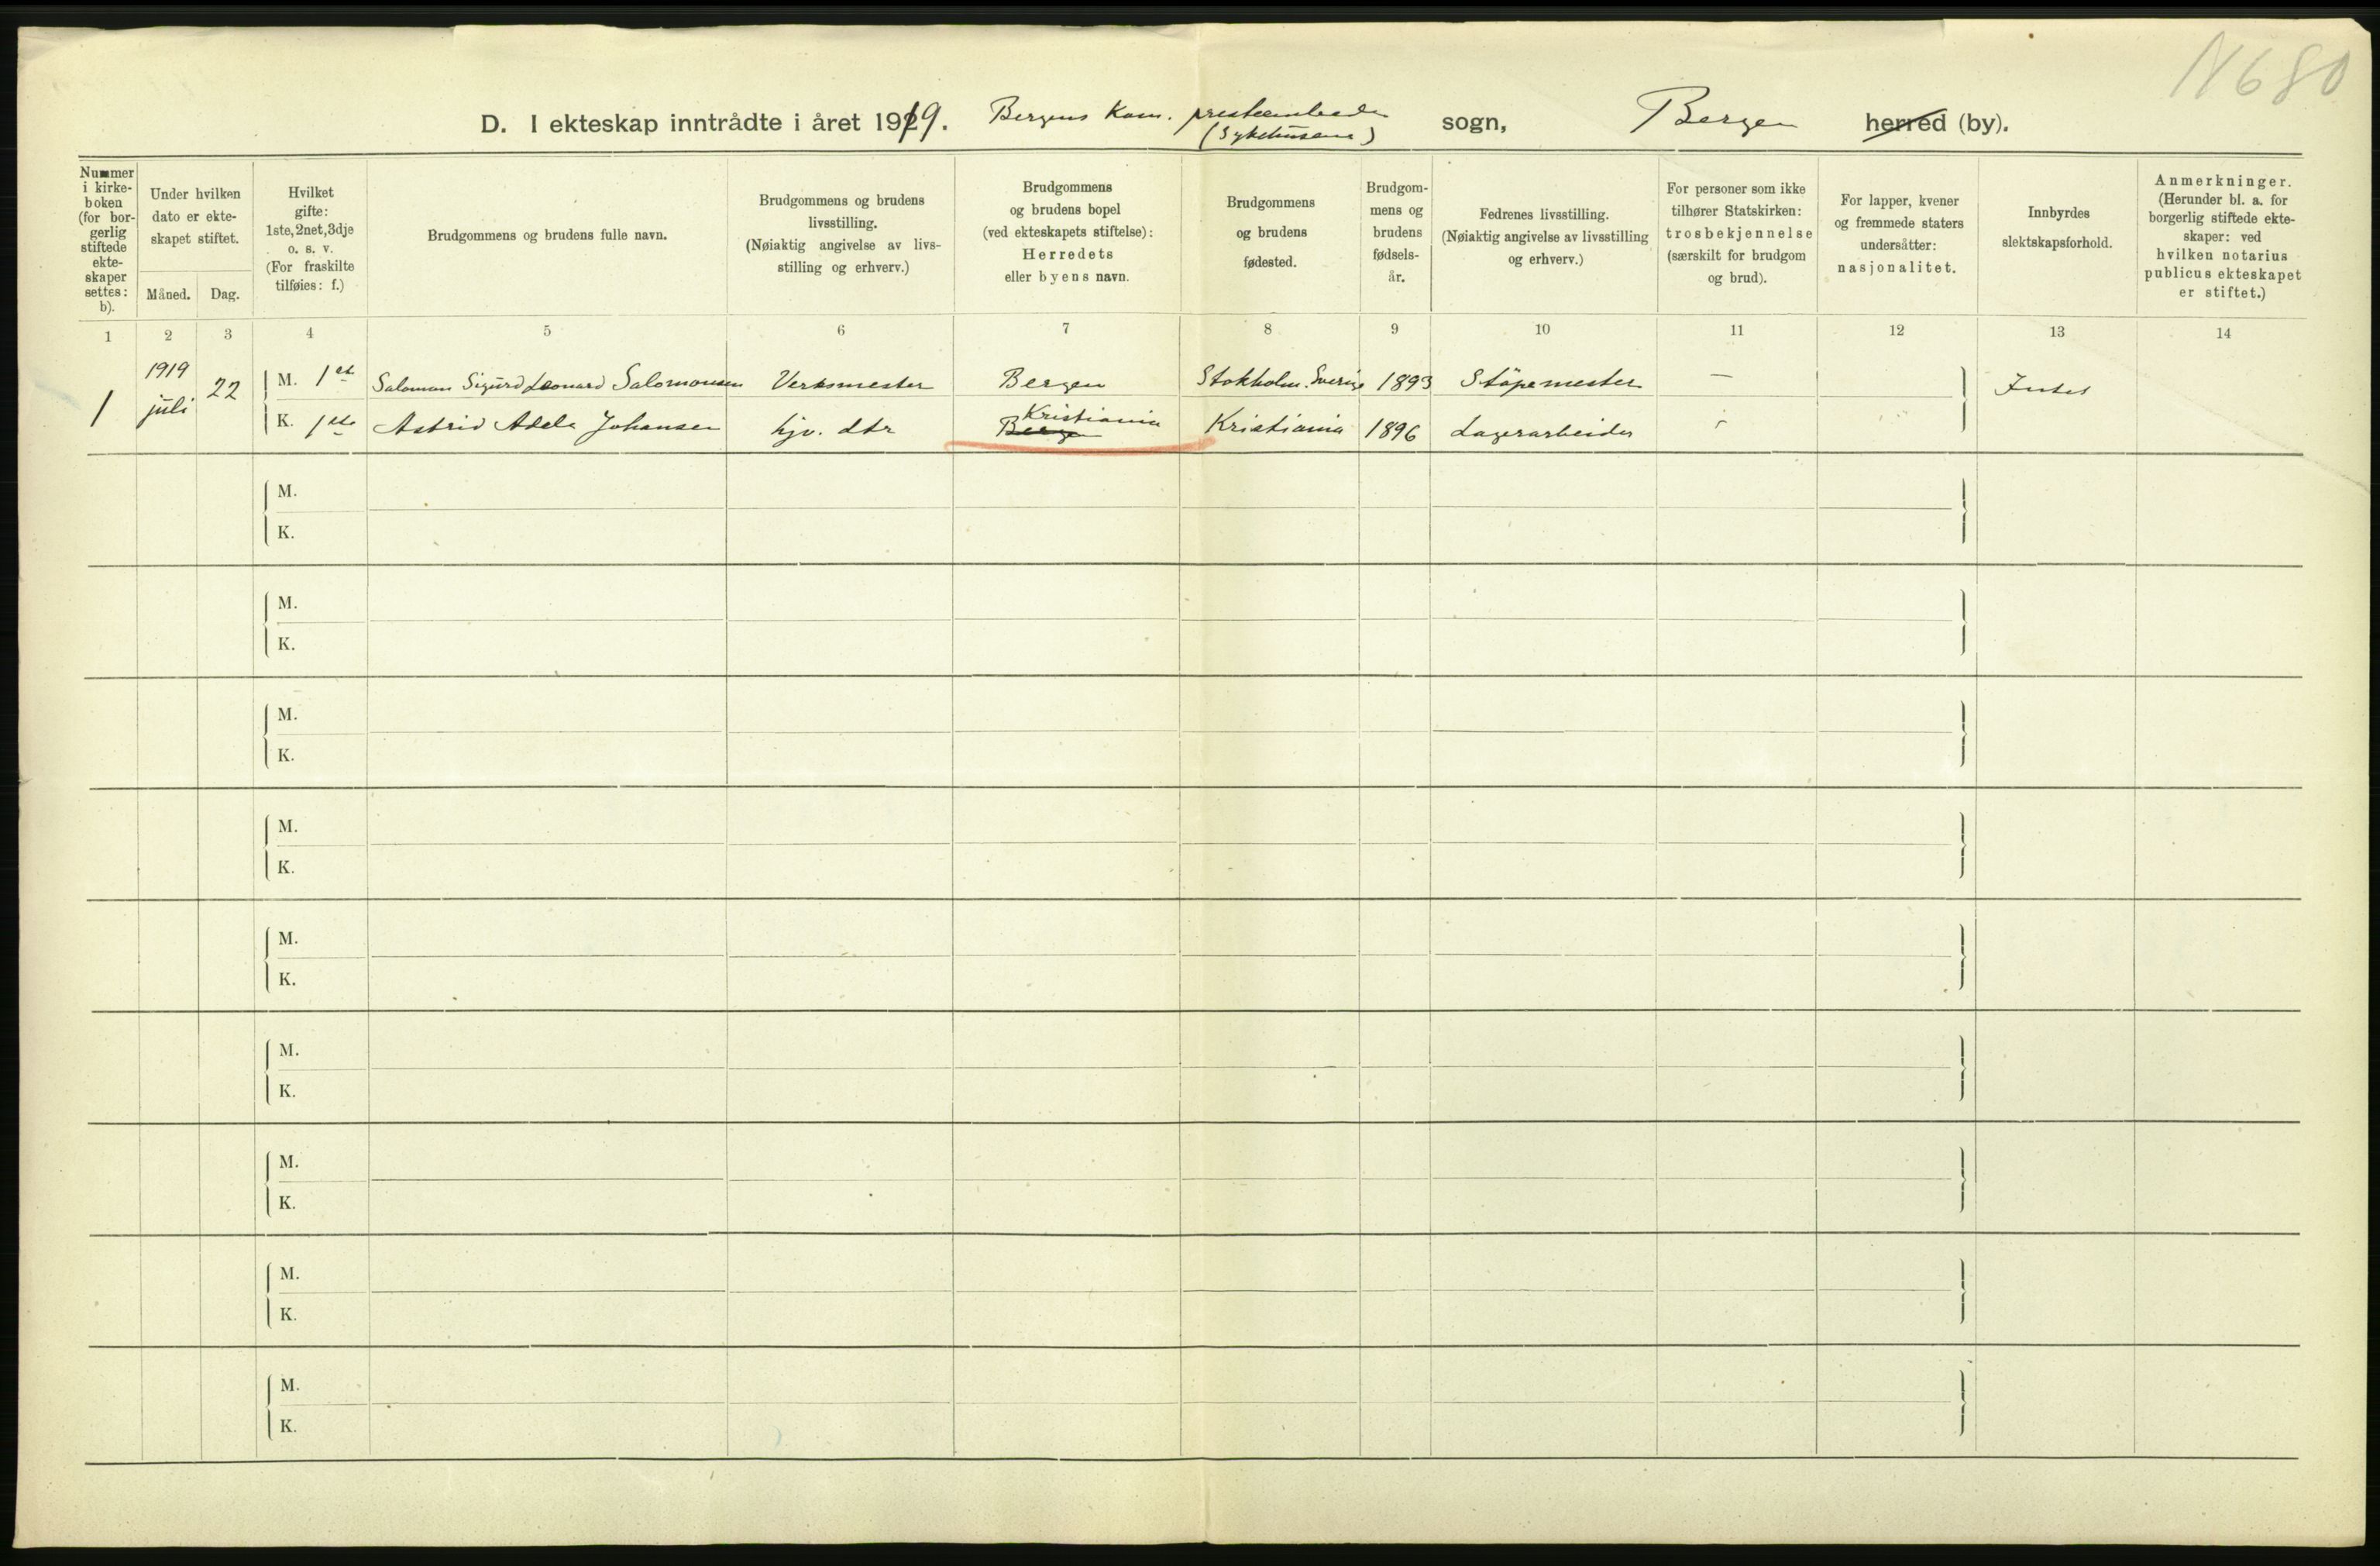 N 680
D. I ekteskap inntrådte i året 1919. Bergens Kom. presteembede (Sykehusene) sogn, Bergen herred (by).
Nummer i kirke-boken (for bor-gerlig stiftede ekte-skaper settes: b).
Under hvilken dato er ekte-skapet stiftet.
Måned. Dag.
Hvilket gifte: 1ste, 2net, 3dje o. s. v. (For fraskilte tilføies: f.)
Brudgommens og brudens fulle navn.
Brudgommens og brudens livsstilling. (Nøiaktig angivelse av livs-stilling og erhverv.)
Brudgommens og brudens bopel (ved ekteskapets stiftelse): Herredets eller byens navn.
Brudgommens og brudens fødested.
Brudgom-mens og brudens fødsels-år.
Fedrenes livsstilling. (Nøiaktig angivelse av livsstilling og erhverv.)
For personer som ikke tilhører Statskirken: trosbekjennelse (særskilt for brudgom og brud).
For lapper, kvener og fremmede staters undersåtter: nasjonalitet.
Innbyrdes slektskapsforhold.
Anmerkninger. (Herunder bl. a. for borgerlig stiftede ekte-skaper: ved hvilken notarius publicus ekteskapet er stiftet.)
1 2 3 4 5 6 7 8 9 10 11 12 13 14
1 1919 juli 22 M. 1ste Salomon Sigurd Leonard Salomonsen Verksmester Bergen Stokholm. Sverige 1893 Stöpemester — Intet
K. 1ste Astrid Adele Johansen hjv. dtr Bergen Kristiania Kristiania 1896 Lagerarbeider
M.
K.
M.
K.
M.
K.
M.
K.
M.
K.
M.
K.
M.
K.
M.
K.
M.
K.